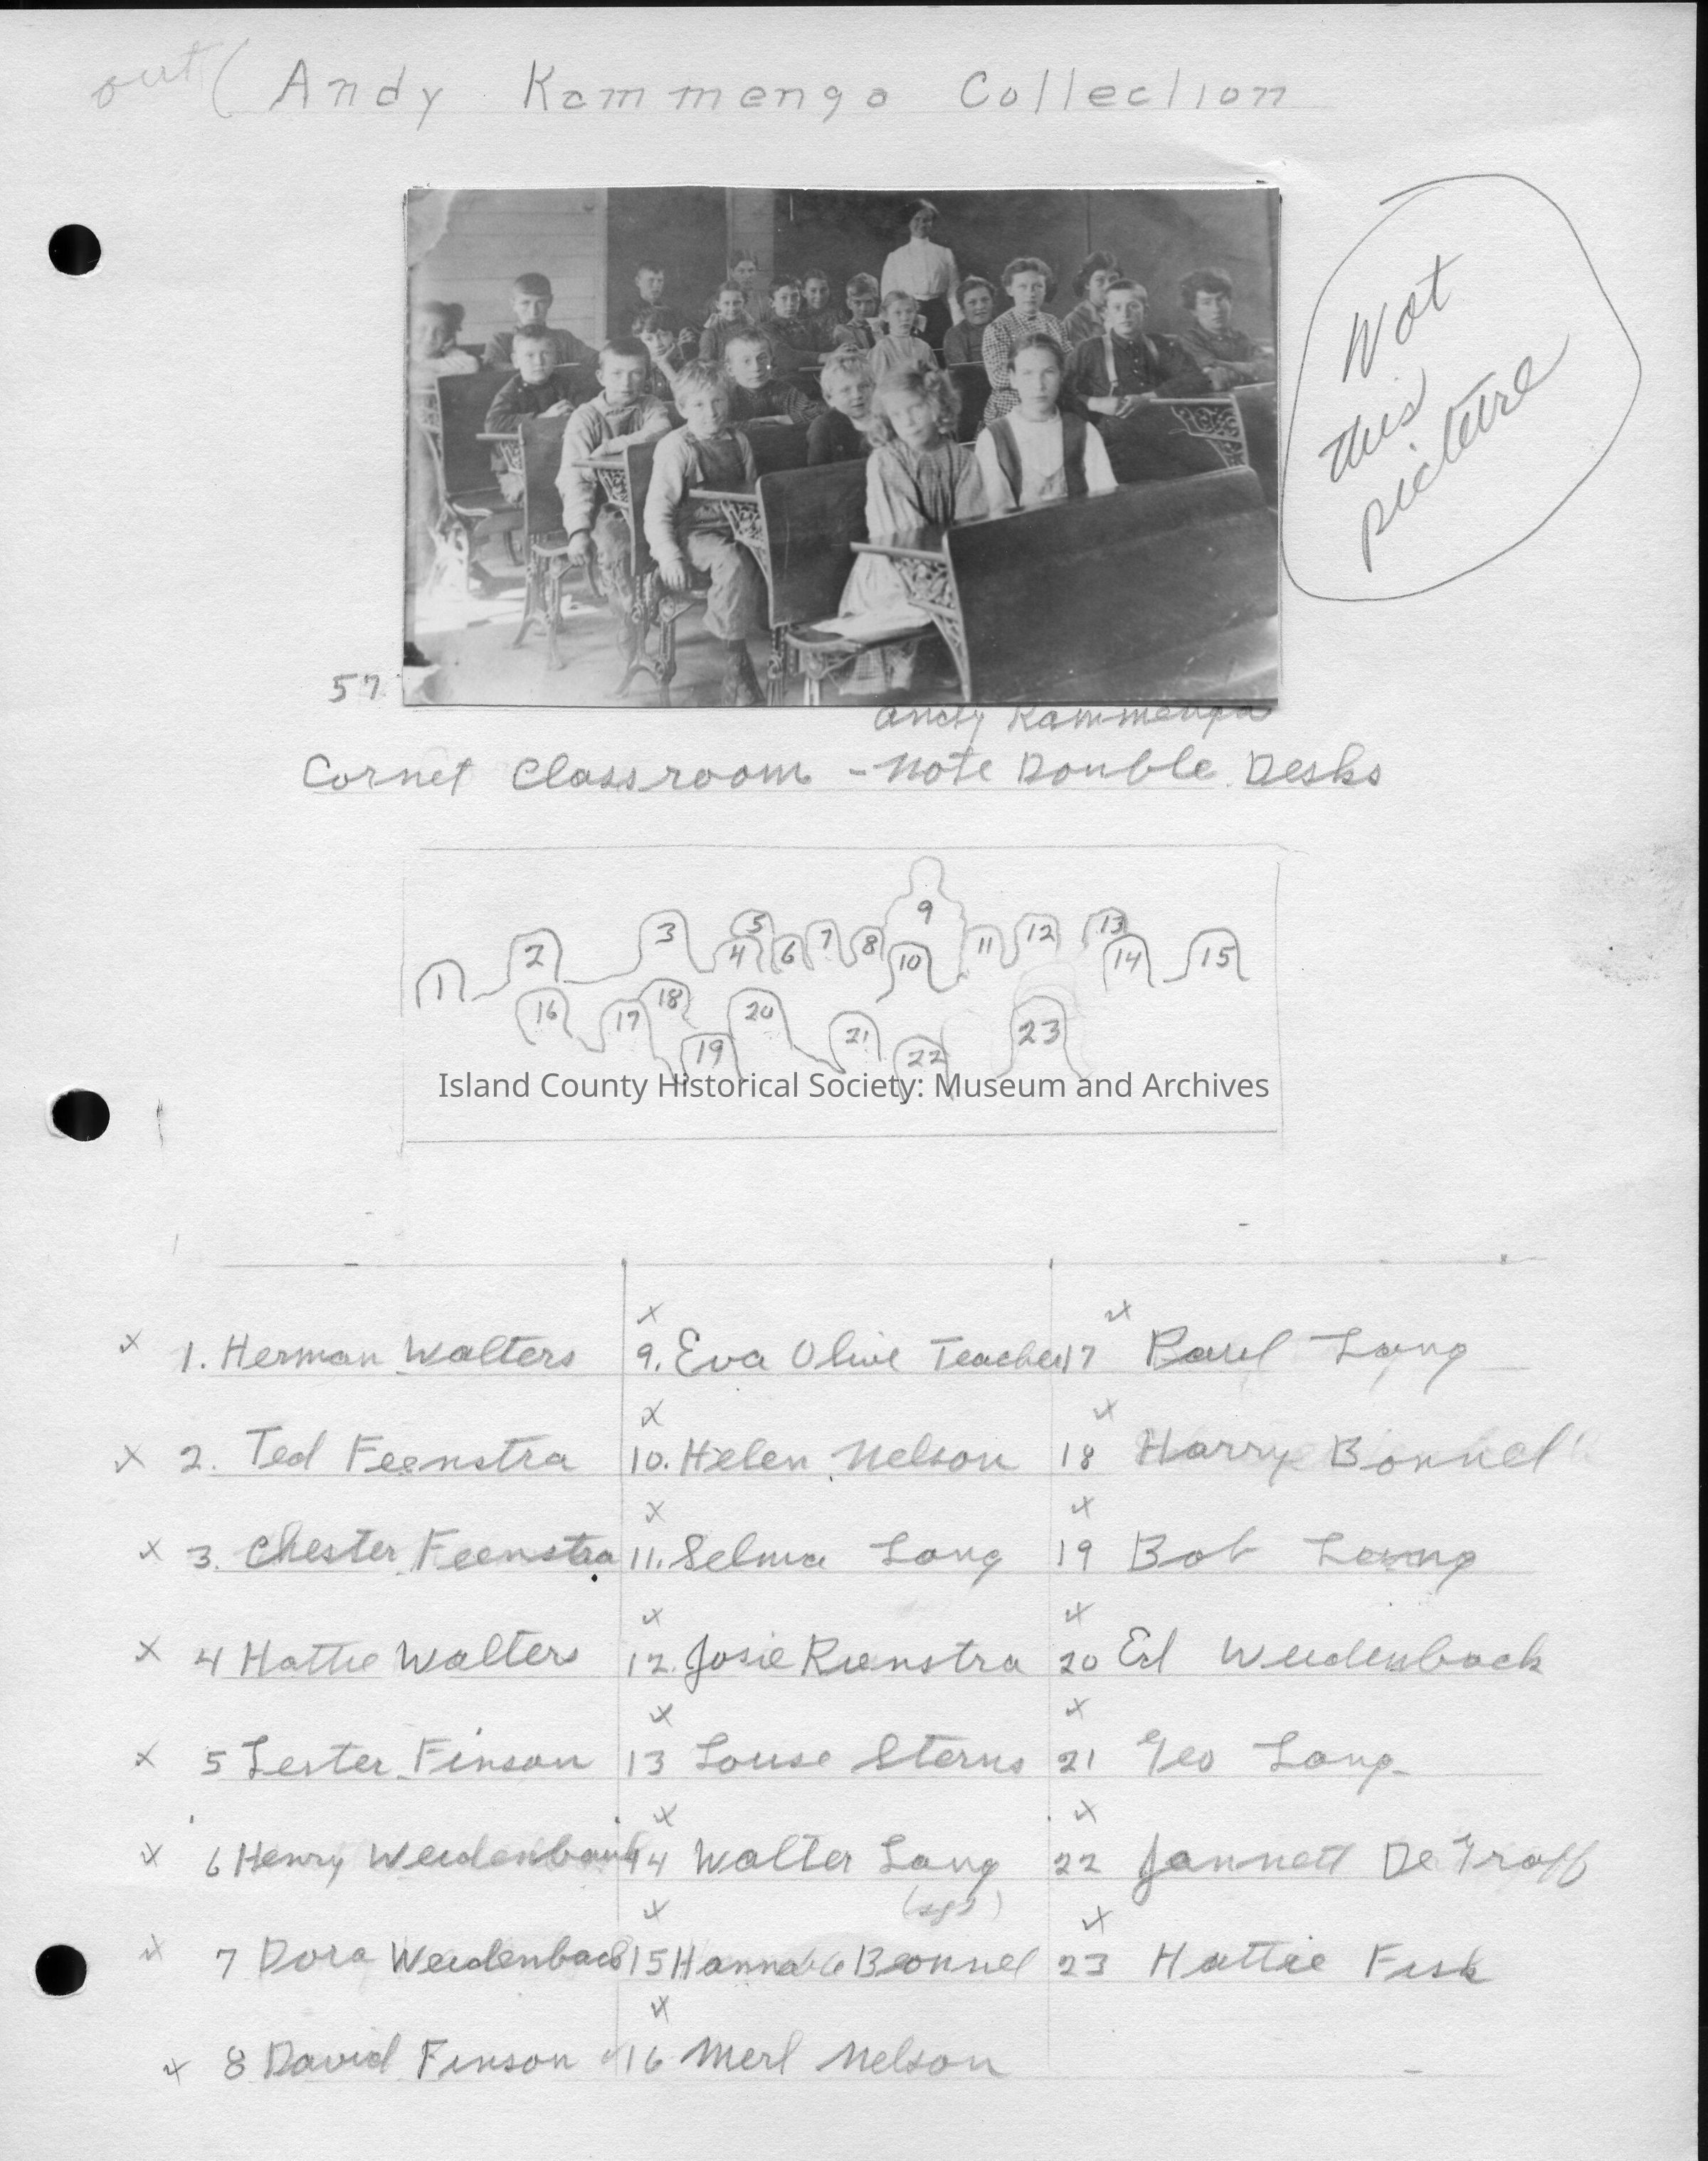 out ( Andy Kammenga Collection
Not
this
picture
57
Andy Kammenga
Cornet Classroom - Note Double Desks
9
5
3 7 12 13
2 4 6 8 11
1 10 14 15
18
16 17 20
21 23
19 22
Island County Historical Society: Museum and Archives
x 1. Herman Walters
x 2. Ted Feenstra
x 3. Chester Feenstra
x 4 Hattie Walters
x 5 Lester Finson
x 6 Henry Weidenbach
x 7 Dora Weidenbach
x 8 David Finson
x 9. Eva Olive Teacher
x 10. Helen Nelson
x 11. Selma Lang
x 12. Josie Rienstra
x 13 Louse Sterns
x 14 Walter Lang
x 15 Hannah Bonnel
x 16 Merl Nelson
x 17 Paul Lang
x 18 Harry Bonnel
x 19 Bob Lang
x 20 Ed Weidenback
x 21 Geo Lang
x 22 Jannett DeGraff
x 23 Hattie Fisk